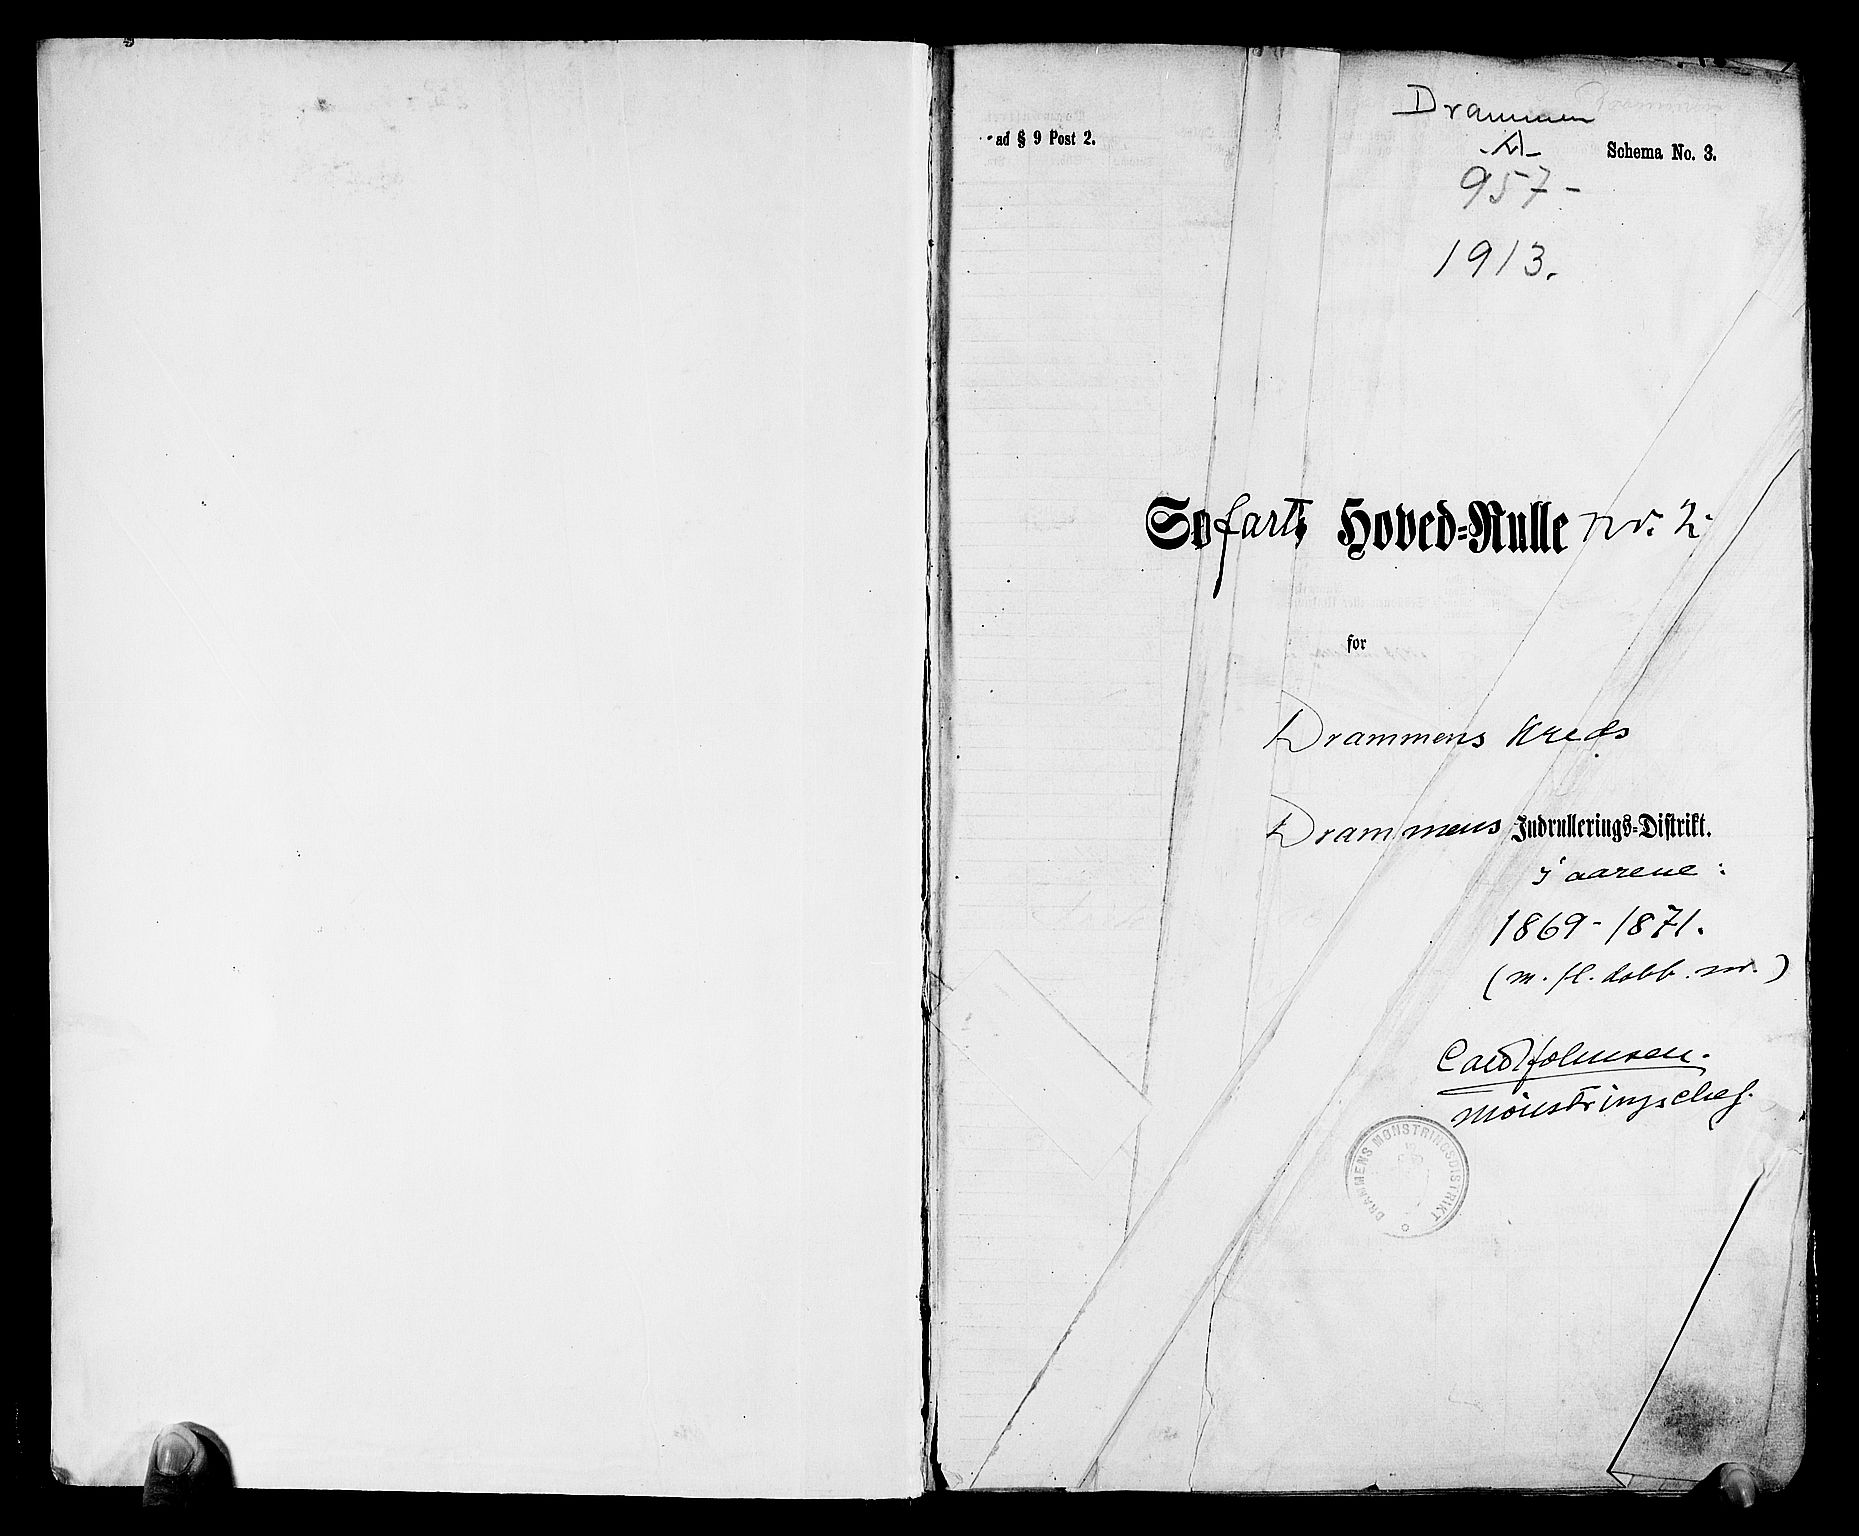 Drammen
ad § 9 Post 2.
Schema No. 3.
957-
1913.
Sofarts Hoved-Rulle nr. 2.
for
Drammens Kreds
Drammens Indrullerings-Distrikt.
i aarene:
1869-1871.
(m. fl. dobb. nr.)
Mönstringschef.
DRAMMENS MØNSTRINGSDISTRIKT